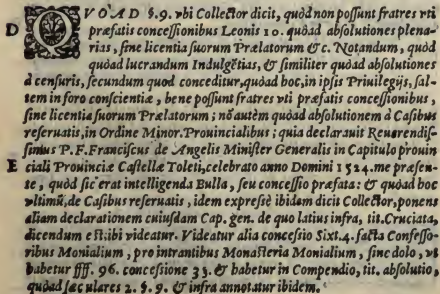 D QVOAD §.9. vbi Collector dicit, quòd non possunt fratres vti
præfatis concessionibus Leonis 10. quòad absolutiones plena-
rias, sine licentia suorum Prælatorum &c. Notandum, quòd
quòad lucrandum Indulgẽtias, & similiter quòad absolutiones
à censuris, secundum quod conceditur, quòad hoc, in ipsis Priuilegijs, sal-
tem in foro conscientiæ, bene possunt fratres vti præfatis concessionibus,
sine licentia suorum Prælatorum; nõ autèm quòad absolutionem à Casibus
reseruatis, in Ordine Minor. Prouincialibus; quia declarauit Reuerendis-
simus P. F. Franciscus de Angelis Minister Generalis in Capitulo prouin
E ciali Prouinciæ Castellæ Toleti, celebrato anno Domini 1524. me præsen-
te, quòd sic erat intelligenda Bulla, seu concessio præfata: & quòad hoc
vltimũ, de Casibus reseruatis, idem expresè ibidem dicit Collector, ponens
aliam declarationem cuiusdam Cap. gen. de quo latius infra, tit. Cruciata,
dicendum est: ibi videatur. Videatur alia concessio Sixt. 4. facta Confesso-
ribus Monialium, pro intrantibus Monasteria Monialium, sine dolo, vt
habetur ffff. 96. concessione 33. & habetur in Compendio, tit. absolutio,
quòad sæculares 2. §. 9. & infra annotatur ibidem.